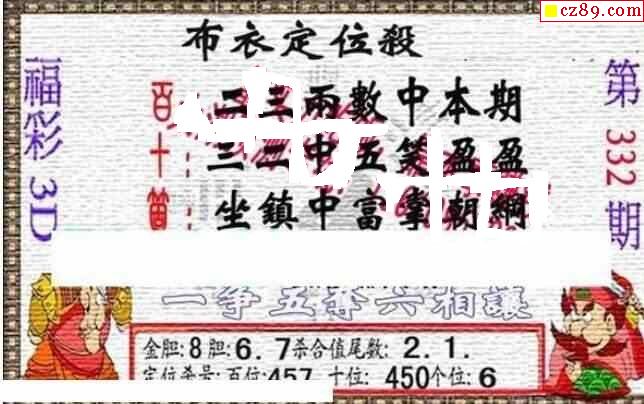 cz89.com
布衣定位殺
福彩3D
第332期
百
十
二三兩數中本期
三二中五笑盈盈
坐鎮中當掌朝綱
一爭五奪六相讓
金胆:8胆:6.7杀合值尾数:2.1.
定位杀号:百位:457 十位:450个位:6